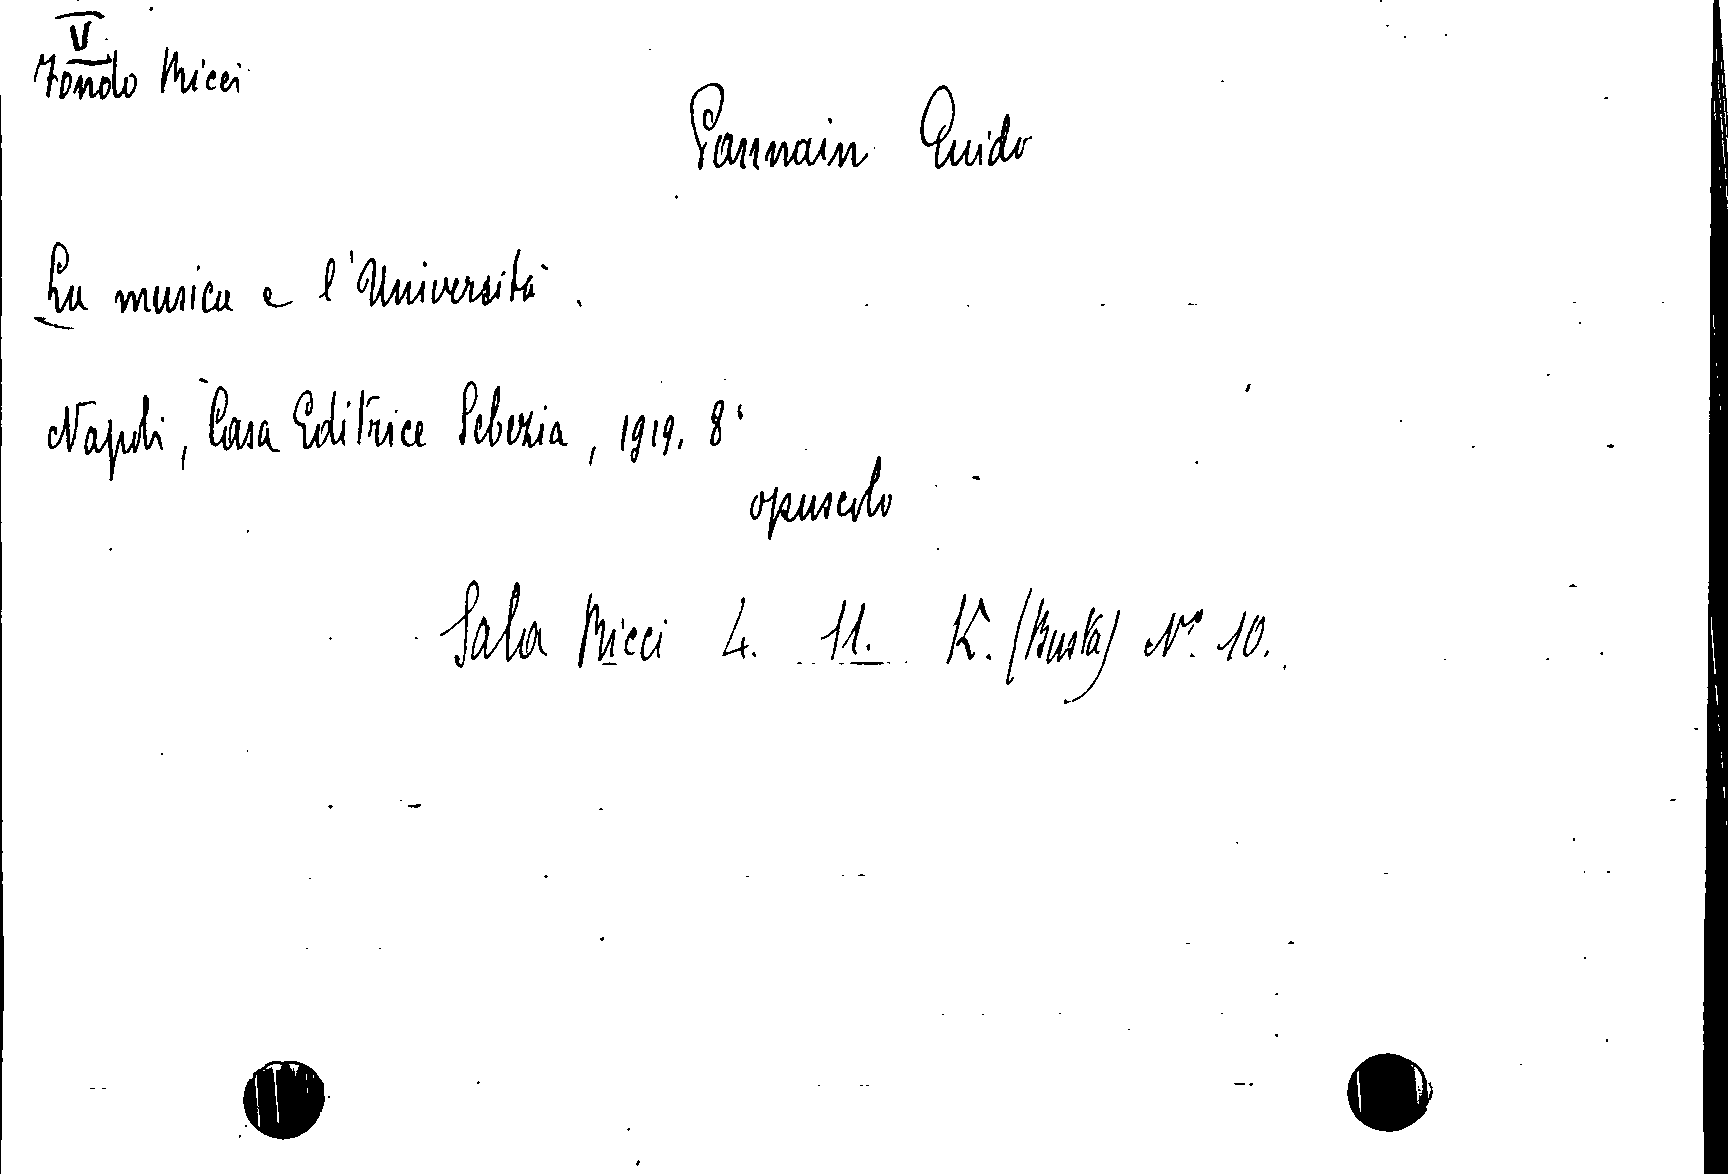 V
Fondo Ricci
Pannain Guido
La musica e l'Università.
Napoli, Casa Editrice Sebezia, 1919. 8°
opuscolo
Sala Ricci 4. 11. K. (Busta) N° 10.